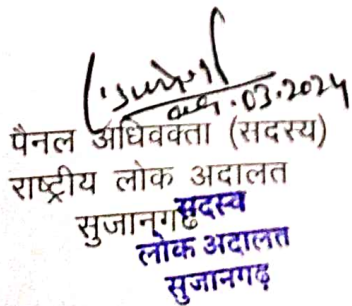 09.03.2024
पैनल अधिवक्ता (सदस्य)
राष्ट्रीय लोक अदालत
सुजानगढ
सदस्य
लोक अदालत
सुजानगढ़